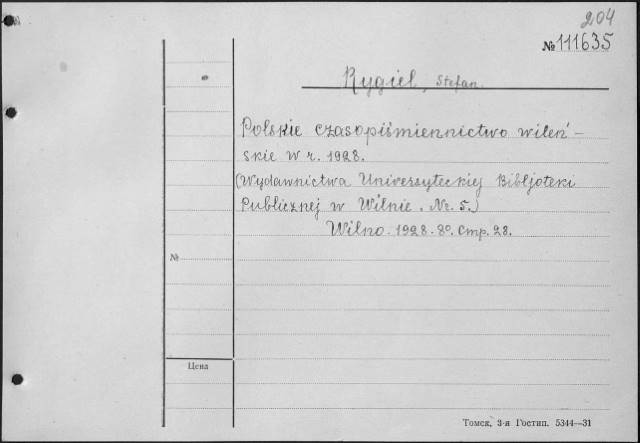 204
№ 111635
Rygiel, Stefan.
Polskie czasopiśmiennictwo wileń-
skie w r. 1928.
(Wydawnictwa Uniwersyteckiej Bibljoteki
Publicznej w Wilnie. Nr. 5.)
Wilno. 1928. 8º. Стр. 28.
№
Цена
Томск, 3-я Гостип. 5344—31